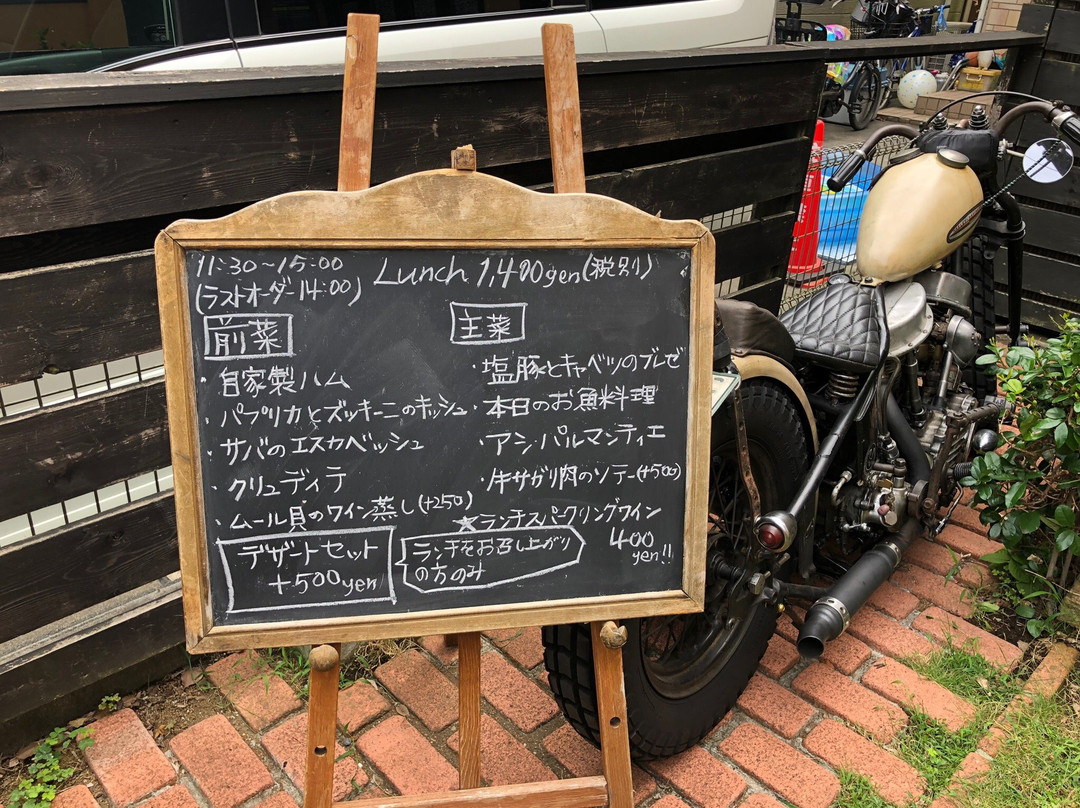 11:30～15:00
(ラストオーダー14:00)
Lunch 1,400yen(税別)
前菜
・自家製ハム
・パプリカとズッキーニのキッシュ
・サバのエスカベッシュ
・クリュディテ
・ムール貝のワイン蒸し(+250)
主菜
・塩豚とキャベツのブレゼ
・本日のお魚料理
・アシ・パルマンティエ
・牛サガリ肉のソテー(+500)
★ランチスパークリングワイン
400
yen!!
デザートセット
+500yen
ランチをお召し上がり
の方のみ